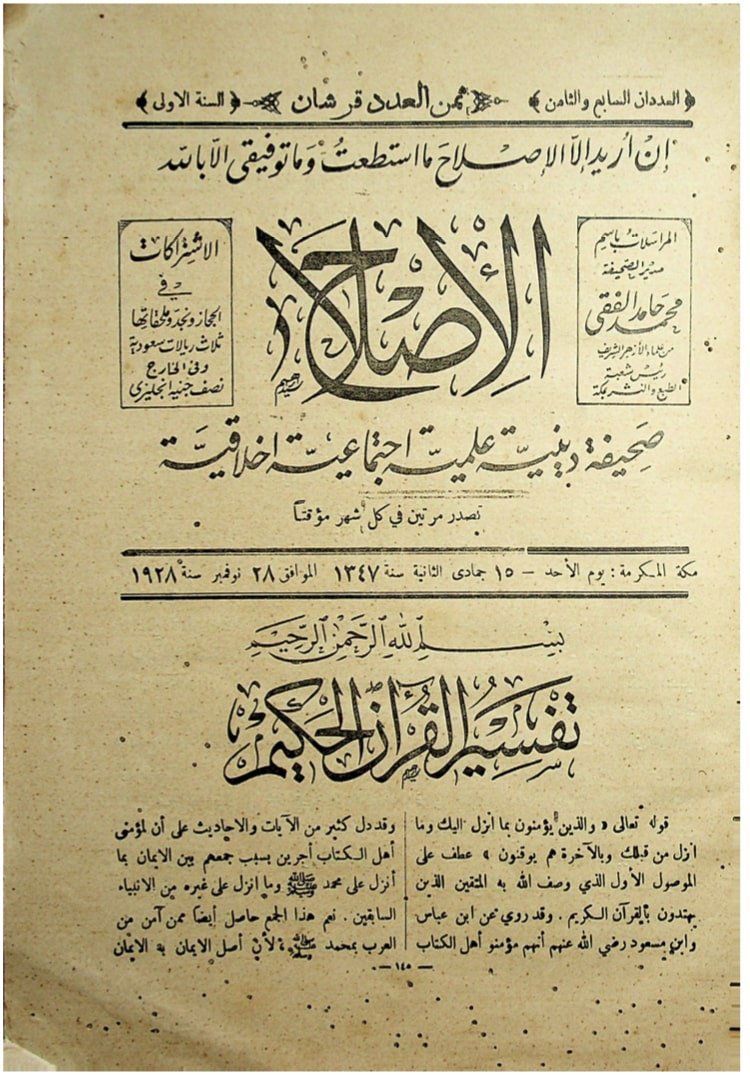 ﴿ العددان السابع والثامن ﴾ ثمن العدد قرشان ﴿ السنة الاولى ﴾
إن أريد إلا الإصلاح ما استطعت وما توفيقي الا بالله
المراسلات باسم
مدير الصحيفة
محمد حامد الفقي
من علماء الأزهر الشريف
رئيس شعبة
الطبع والنشر بمكة
الإصلاح
الاشتراكات
في
الحجاز ونجد وملحقاتها
ثلاث ريالات سعودية
وفى الخارج
نصف جنيه انجليزى
صحيفة دينية علمية اجتماعية اخلاقية
تصدر مرتين في كل شهر مؤقتاً
مكة المكرمة : يوم الأحد – ١٥ جمادى الثانية سنة ١٣٤٧ الموافق ٢٨ نوفمبر سنة ١٩٢٨
بسم الله الرحمن الرحيم
تفسير القرآن الحكيم
قوله تعالى « والذين يؤمنون بما انزل اليك وما
انزل من قبلك وبالآخرة هم يوقنون » عطف على
الموصول الأول الذي وصف الله به المتقين الذين
يهتدون بالقرآن الكريم . وقد روي عن ابن عباس
وابن مسعود رضي الله عنهم أنهم مؤمنو أهل الكتاب
وقد دل كثير من الآيات والاحاديث على أن لمؤمنى
أهل الكتاب أجرين بسبب جمعهم بين الايمان بما
أنزل على محمد ﷺ وما انزل على غيره من الانبياء
السابقين . نعم هذا الجمع حاصل أيضا ممن آمن من
العرب بمحمد ﷺ ، لأن أصل الايمان به الايمان
— ١٤٥ —